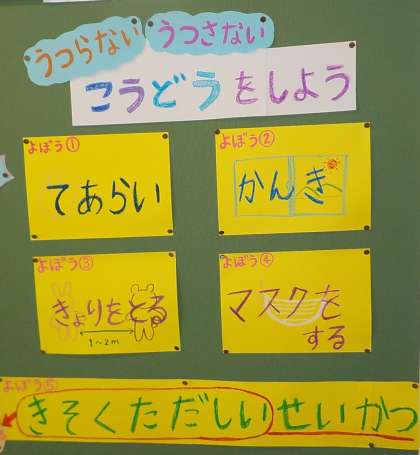 うつらない うつさない
こうどうをしよう
よぼう①
てあらい
よぼう②
かんき
よぼう③
きょりをとる
1~2m
よぼう④
マスクを
する
よぼう⑤
きそくただしいせいかつ